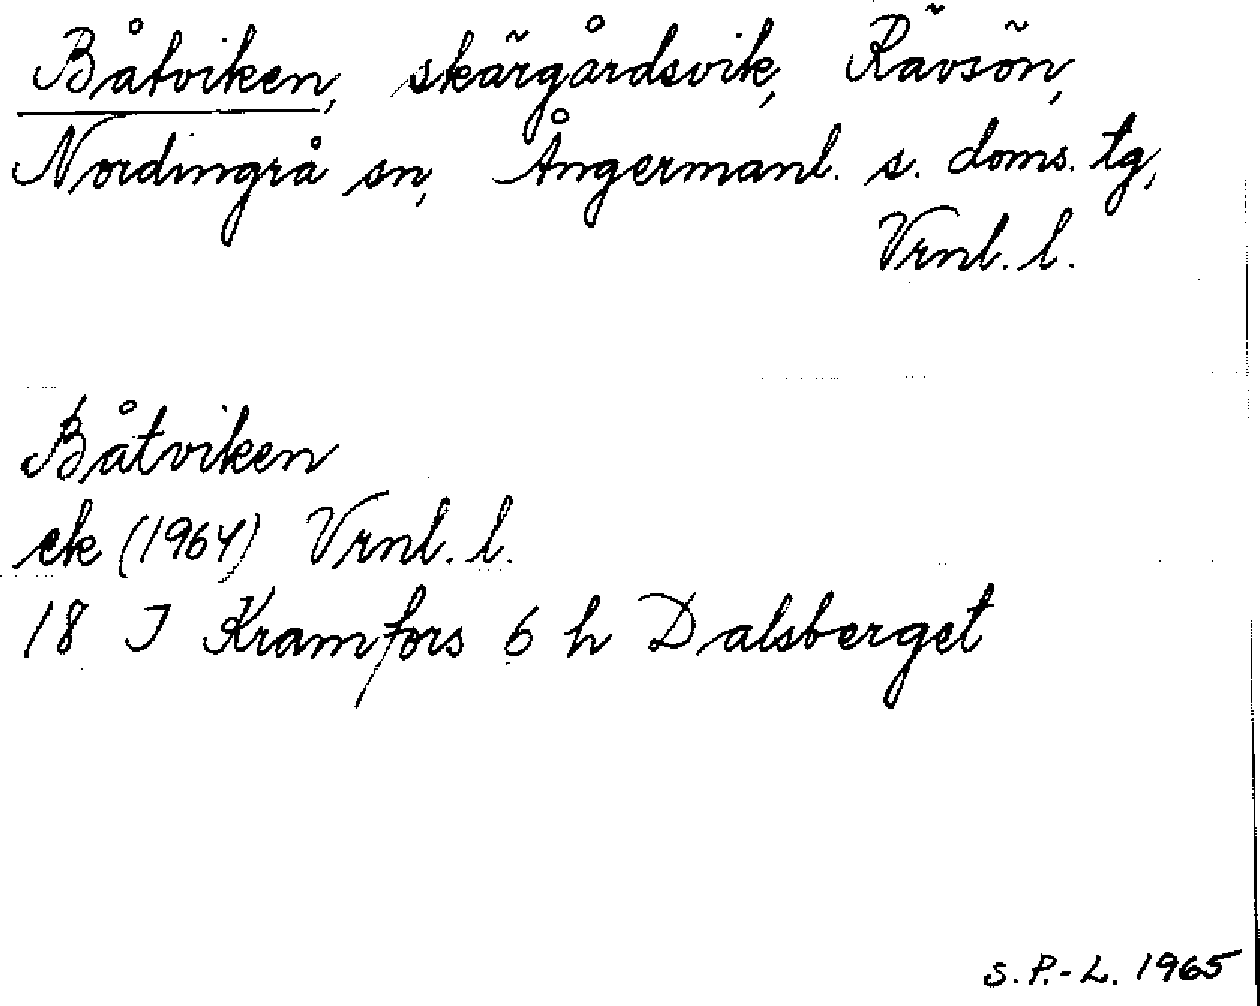 Båtviken, skärgårdsvik, Rävsön,
Nordingrå sn, Ångermanl. s. doms. tg,
Vrnl. l.
Båtviken
ek (1964) Vrnl. l.
18 J Kramfors 6 h Dalsberget
S. P.-L. 1965